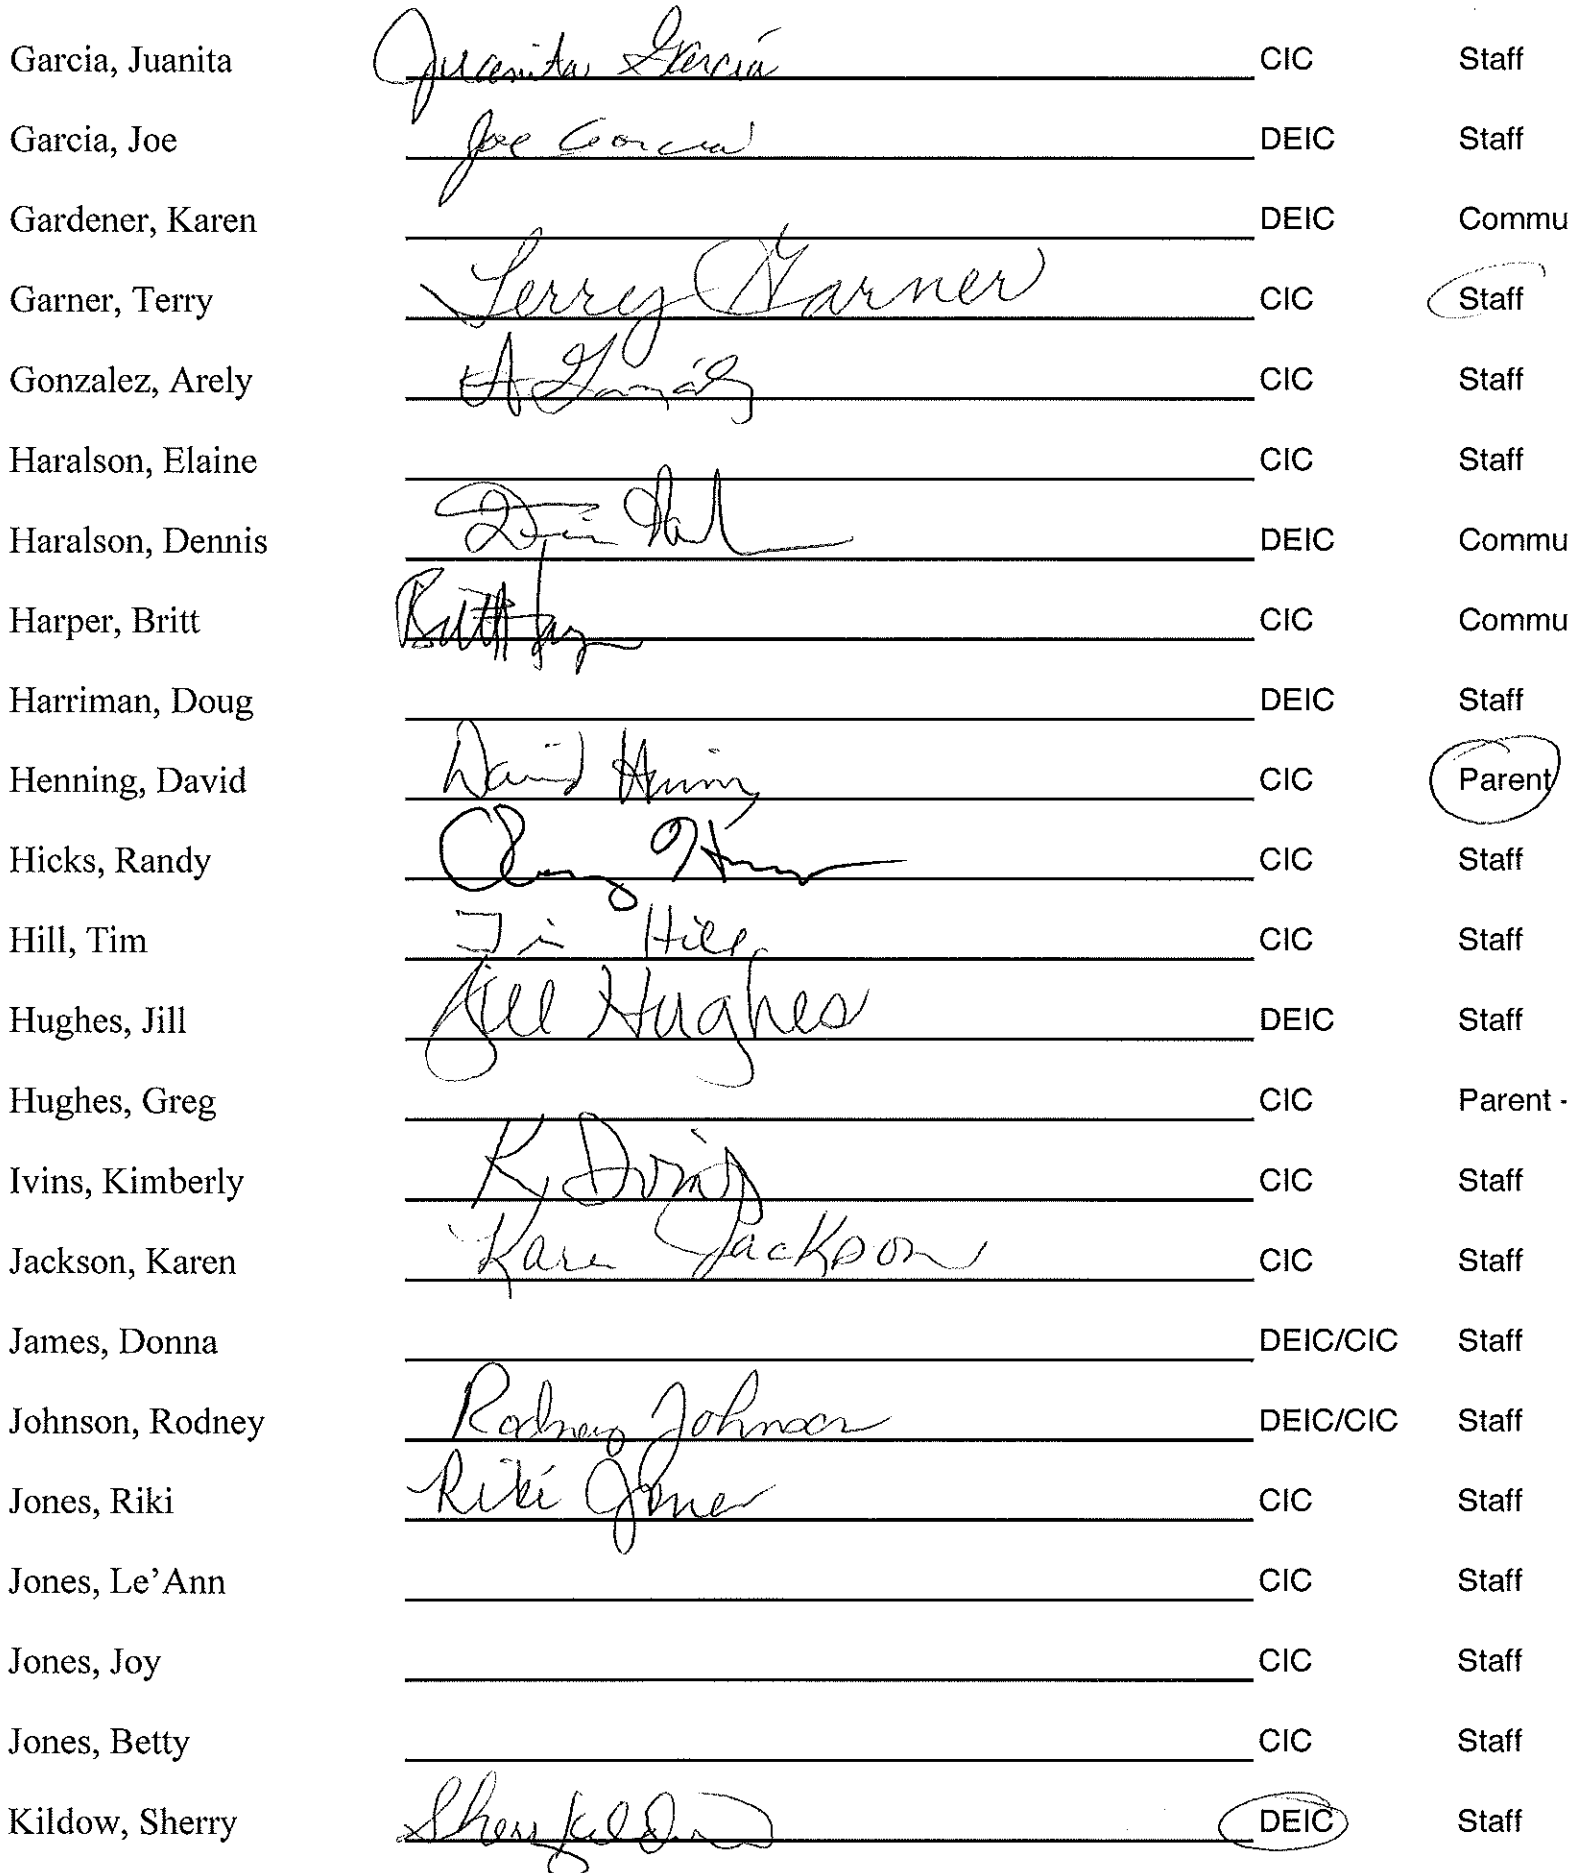 Garcia, Juanita Juanita Garcia CIC Staff
Garcia, Joe Joe Garcia DEIC Staff
Gardener, Karen DEIC Commu
Garner, Terry Terry Garner CIC Staff
Gonzalez, Arely A González CIC Staff
Haralson, Elaine CIC Staff
Haralson, Dennis DEIC Commu
Harper, Britt Britt CIC Commu
Harriman, Doug DEIC Staff
Henning, David David Henning CIC Parent
Hicks, Randy CIC Staff
Hill, Tim Tim Hill CIC Staff
Hughes, Jill Jill Hughes DEIC Staff
Hughes, Greg CIC Parent -
Ivins, Kimberly K Ivins CIC Staff
Jackson, Karen Karen Jackson CIC Staff
James, Donna DEIC/CIC Staff
Johnson, Rodney Rodney Johnson DEIC/CIC Staff
Jones, Riki Riki Jones CIC Staff
Jones, Le’Ann CIC Staff
Jones, Joy CIC Staff
Jones, Betty CIC Staff
Kildow, Sherry Sherry Kildow DEIC Staff